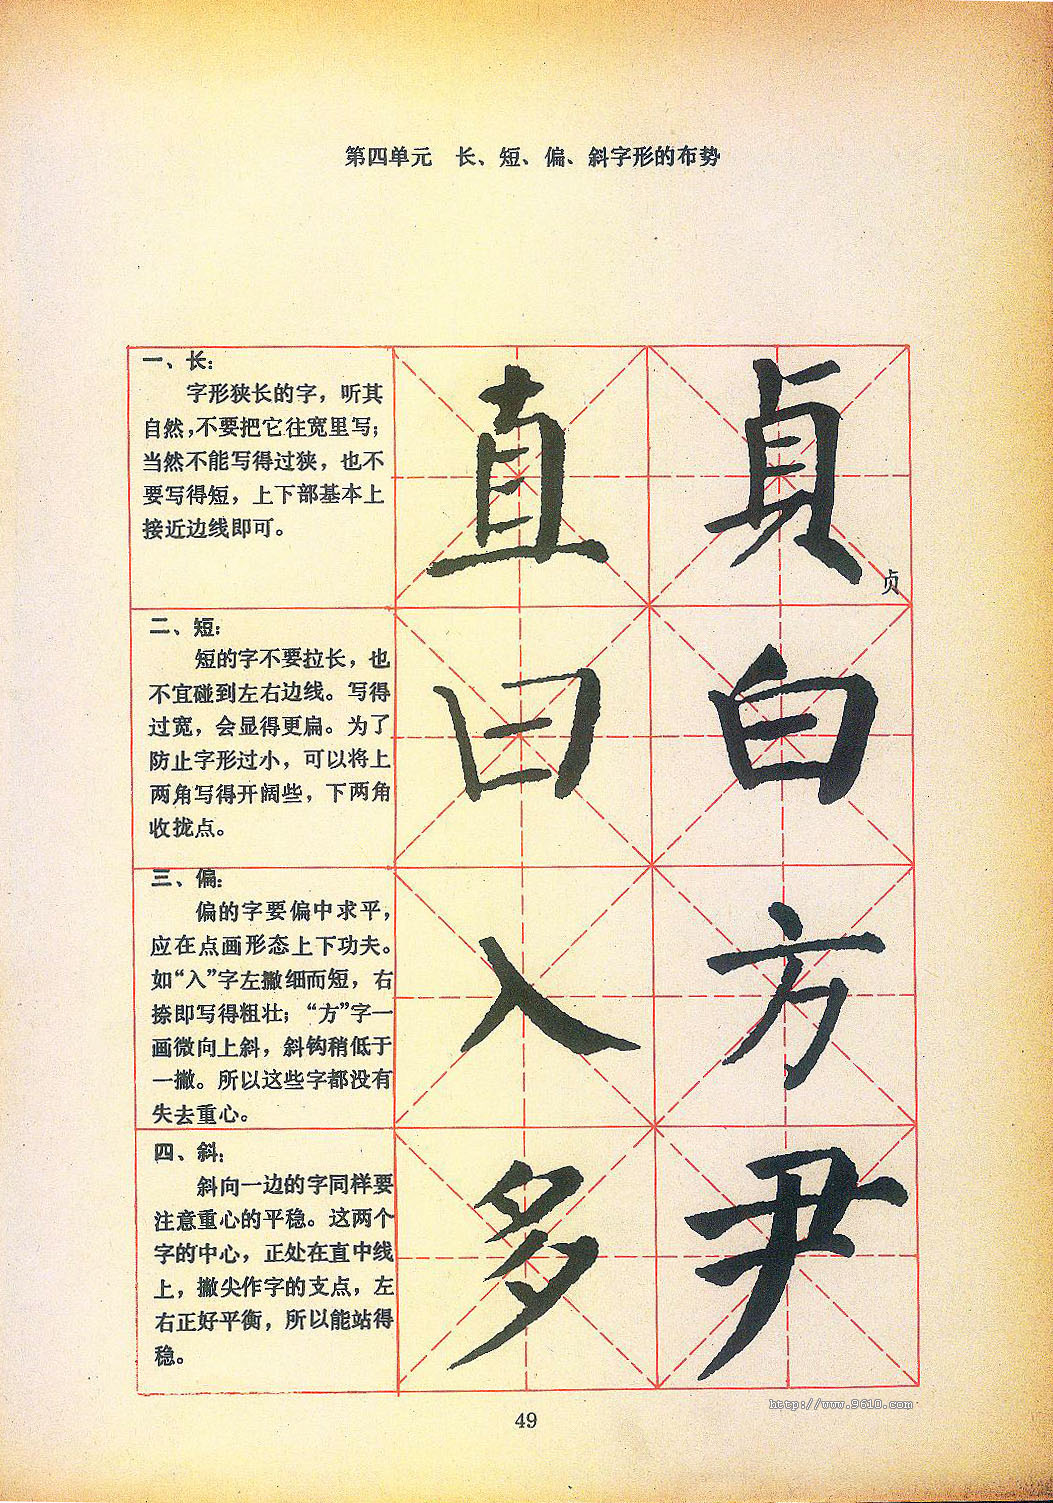 第四单元　长、短、偏、斜字形的布势
一、长：
字形狭长的字，听其
自然，不要把它往宽里写；
当然不能写得过狭，也不
要写得短，上下部基本上
接近边线即可。
直 貞
贞
二、短：
短的字不要拉长，也
不宜碰到左右边线。写得
过宽，会显得更扁。为了
防止字形过小，可以将上
两角写得开阔些，下两角
收拢点。
曰 白
三、偏：
偏的字要偏中求平，
应在点画形态上下功夫。
如“入”字左撇细而短，右
捺即写得粗壮；“方”字一
画微向上斜，斜钩稍低于
一撇。所以这些字都没有
失去重心。
入 方
四、斜：
斜向一边的字同样要
注意重心的平稳。这两个
字的中心，正处在直中线
上，撇尖作字的支点，左
右正好平衡，所以能站得
稳。
多 尹
http://www.9610.com
49